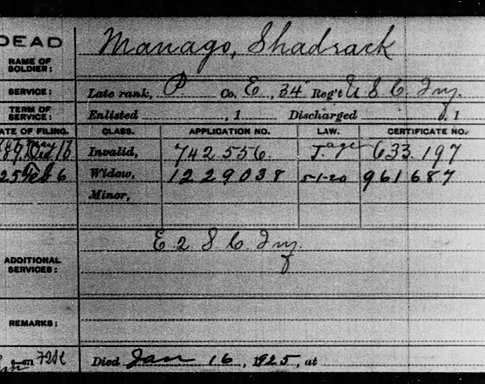 DEAD
NAME OF SOLDIER: Manago, Shadrack
SERVICE: Late rank, P Co. E, 34 Reg't U S C Iny.
TERM OF SERVICE: Enlisted , 1 Discharged , 1
ATE OF FILING. CLASS. APPLICATION NO. LAW. CERTIFICATE NO.
Invalid, 742556. 633.197
25 Feb 6 Widow, 1229038 5-1-20 961687
Minor,
E 2 S C Iny.
ADDITIONAL SERVICES:
REMARKS:
Died Jan 16, 1925, at